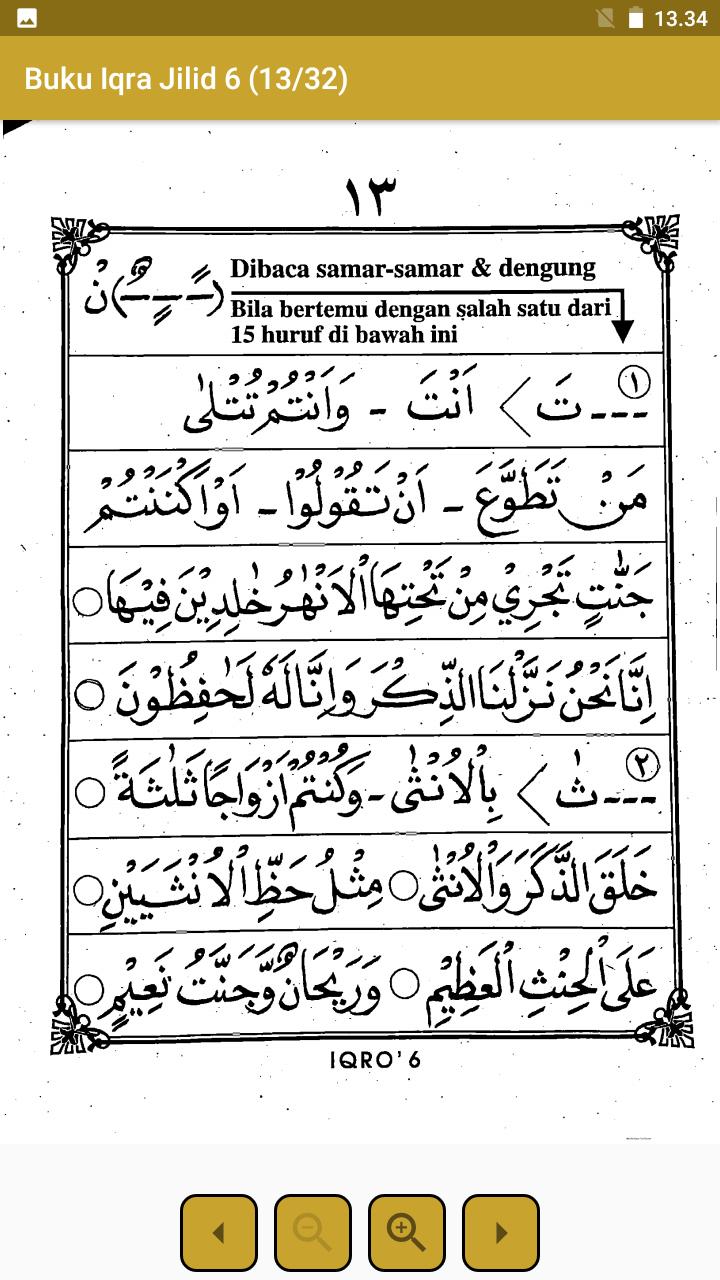 13.34
Buku Iqra Jilid 6 (13/32)
١٣
Dibaca samar-samar & dengung
نْ (ـًـ ـٍـ ـٌـ)
Bila bertemu dengan salah satu dari
15 huruf di bawah ini
١ ---تَ > اَنْتَ - وَاَنْتُمْ تُتْلٰى
مَنْ تَطَوَّعَ - اَنْ تَقُوْلُوْا - اَوْ اَكْنَنْتُمْ
جَنّٰتٍ تَجْرِيْ مِنْ تَحْتِهَا الْاَنْهٰرُ خٰلِدِيْنَ فِيْهَا ○
اِنَّا نَحْنُ نَزَّلْنَا الذِّكْرَ وَاِنَّا لَهٗ لَحٰفِظُوْنَ ○
٢ ---ثٰ > بِالْاُنْثٰى - وَكُنْتُمْ اَزْوَاجًا ثَلٰثَةً ○
خَلَقَ الذَّكَرَ وَالْاُنْثٰى ○ مِثْلُ حَظِّ الْاُنْثَيَيْنِ ○
عَلَى الْحِنْثِ الْعَظِيْمِ ○ وَرَيْحَانٌ وَّجَنَّتُ نَعِيْمٍ ○
IQRO' 6